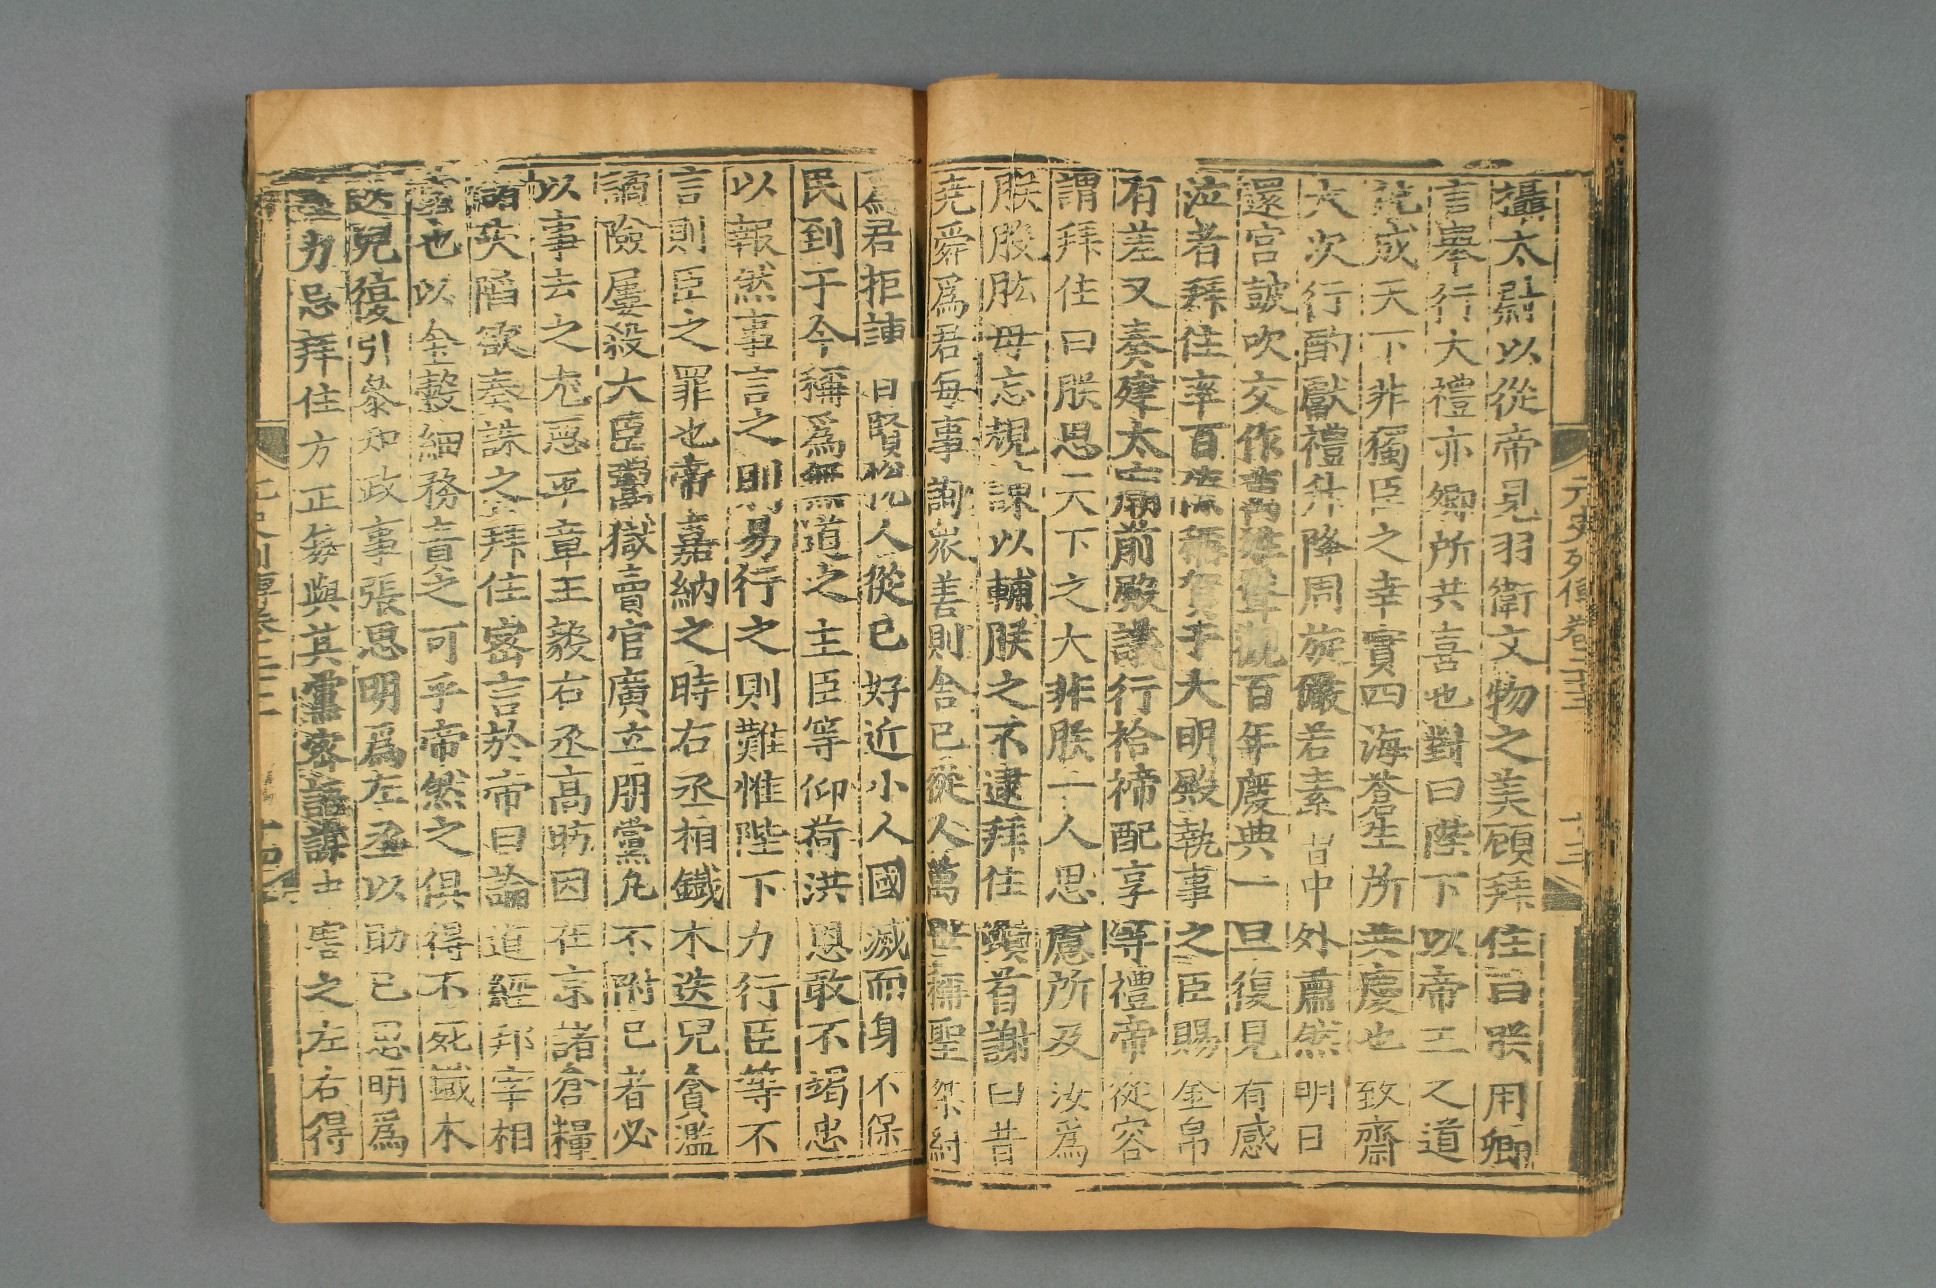 元史列傳卷二十三
十三
攝太尉以從帝見羽衛文物之美顧拜住曰朕用卿
言舉行大禮亦卿所共喜也對曰陛下以帝王之道
化成天下非獨臣之幸實四海蒼生所共慶也致齋
大次行酌獻禮升降周旋儼若素習中外肅然明日
還宮鼓吹交作萬姓聳觀百年廢典一旦復見有感
泣者拜住率百僚稱賀于大明殿執事之臣賜金帛
有差又奏建太廟前殿議行祫禘配享等禮帝從容
謂拜住曰朕思天下之大非朕一人思慮所及汝爲
朕股肱毋忘規諫以輔朕之不逮拜住頓首謝曰昔
堯舜爲君每事詢衆善則舍已從人萬世稱聖桀紂
爲君拒諫自賢悅人從已好近小人國滅而身不保
民到于今稱爲無道之主臣等仰荷洪恩敢不竭忠
以報然事言之則易行之則難惟陛下力行臣等不
言則臣之罪也帝嘉納之時右丞相鐵木迭兒貪濫
譎險屢殺大臣鬻獄賣官廣立朋黨凡不附已者必
以事去之尤惡平章王毅右丞高昉因在京諸倉糧
儲失陷欲奏誅之拜住密言於帝曰論道經邦宰相
事也以金穀細務責之可乎帝然之俱得不死鐵木
迭兒復引參知政事張思明爲左丞以助已思明爲
盡力忌拜住方正每與其黨密語謀中害之左右得
元史列傳卷二十三
十四